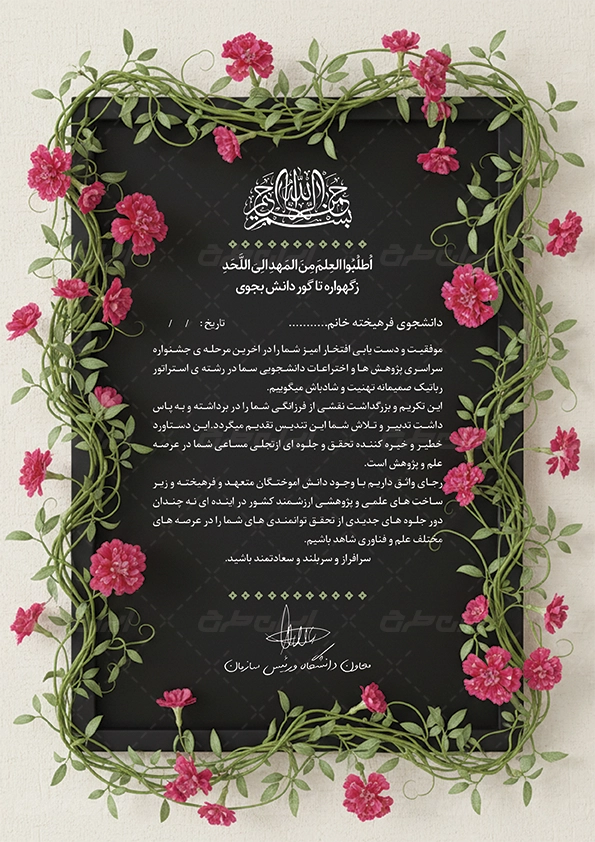 بسم الله الرحمن الرحیم
اُطلُبُوا العِلمَ مِنَ المَهدِ اِلیَ اللَّحَدِ
زگهواره تا گور دانش بجوی
دانشجوی فرهیخته خانم........... تاریخ: / /
موفقیت و دست یابی افتخار امیز شما را در اخرین مرحله ی جشنواره
سراسری پژوهش ها و اختراعات دانشجویی سما در رشته ی استراتور
رباتیک صمیمانه تهنیت و شادباش میگوییم.
این تکریم و بزرگداشت نقشی از فرزانگی شما را در برداشته و به پاس
داشت تدبیر و تلاش شما این تندیس تقدیم میگردد.این دستاورد
خطیر و خیره کننده تحقق و جلوه ای ازتجلی مساعی شما در عرصه
علم و پژوهش است.
رجای واثق داریم با وجود دانش اموختگان متعهد و فرهیخته و زیر
ساخت های علمی و پژوهشی ارزشمند کشور در اینده ای نه چندان
دور جلوه های جدیدی از تحقق توانمندی های شما را در عرصه های
مختلف علم و فناوری شاهد باشیم.
سرافراز و سربلند و سعادتمند باشید.
معاون دانشگاه ورئیس سازمان
ایران طرح